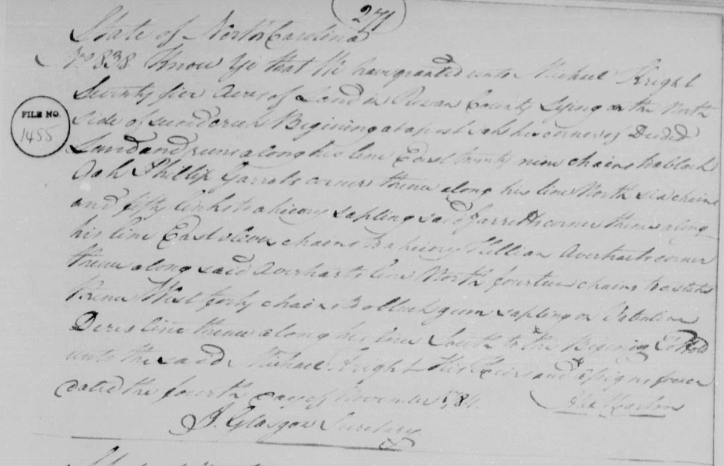 271
State of North Carolina
No 838 Know Ye that We have granted unto Michael
Seventy five Acres of Land in Rowan County Lying on the North
FILE NO.
1455
side of Begining at a post oak his corner of Deeded
Land and runs along his line East twenty nine chains to a black
Oak Phillip Garrots corner thence along his line North six chains
and fifty links to a hicory sapling said Garretts corner thence along
his line East eleven chains to a hicory Killian Averharts corner
thence along said Averharts line North fourteen chains to a stake
thence West forty chains to a black gum sapling on
line thence along his line South to the Begining To Hold
unto the said Michael His Heirs and Assigns forever
dated the fourth day of November 1784.
J. Glasgow Secretary